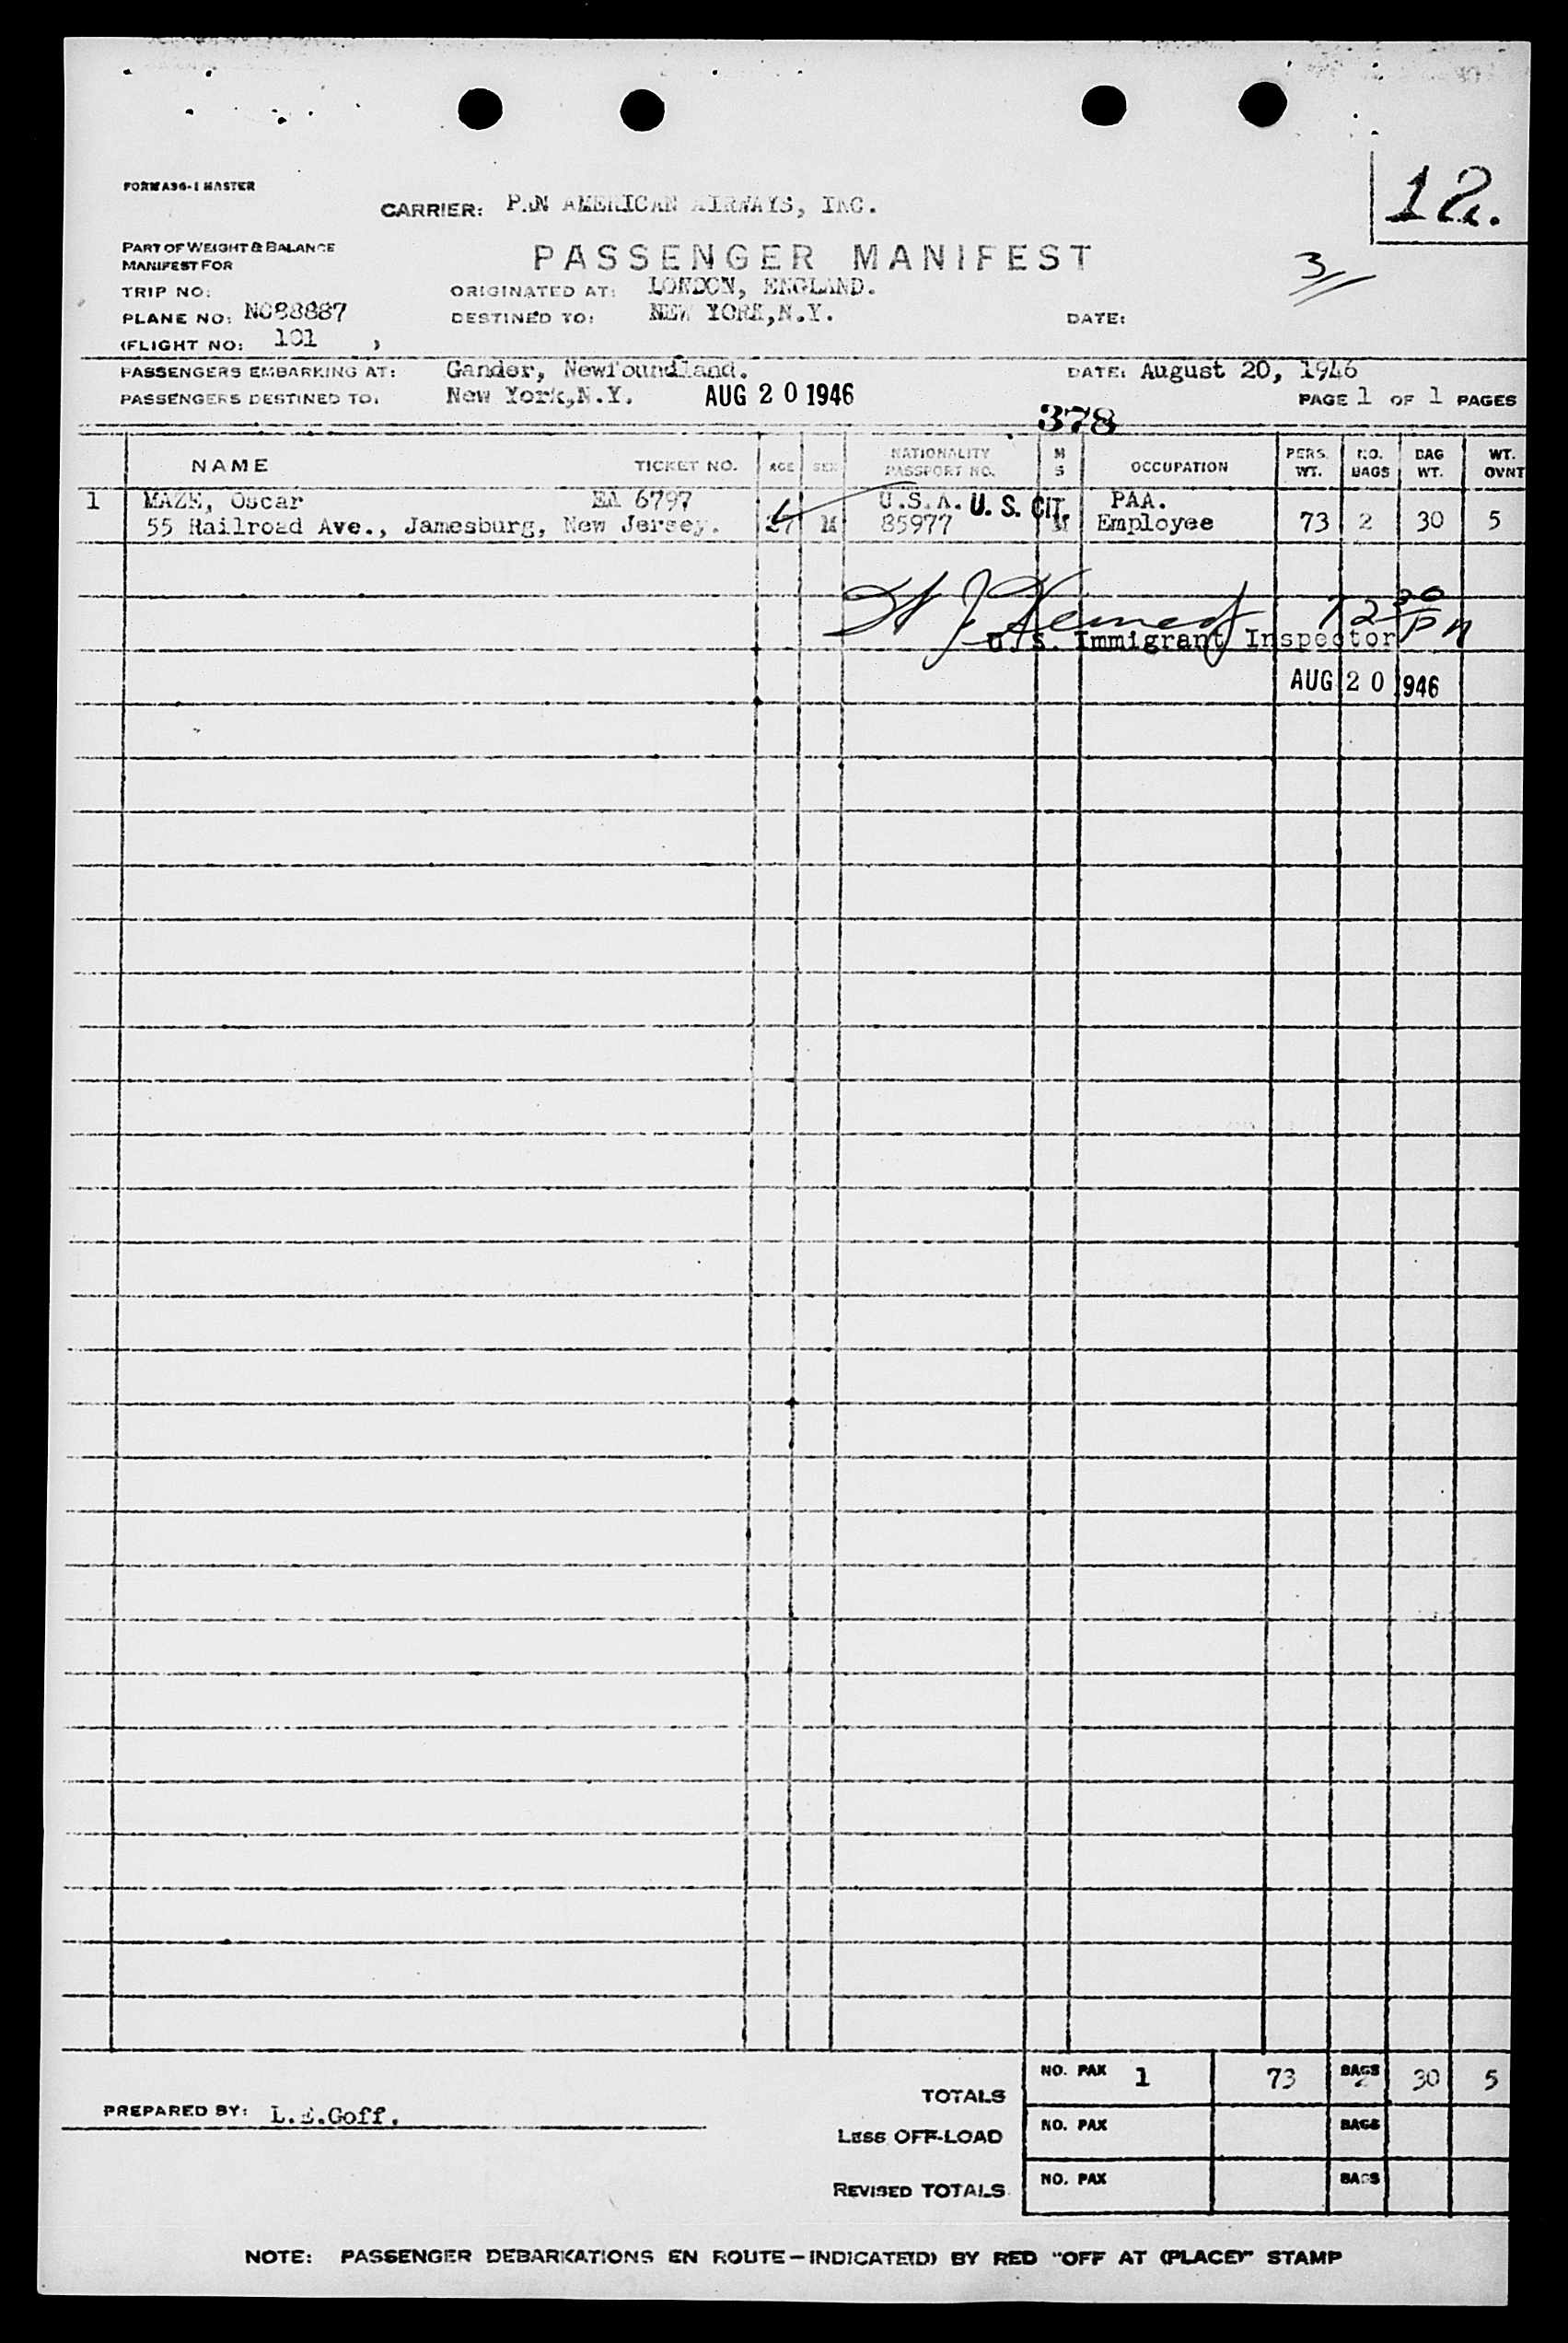 12.
FORM A36-1 MASTER
CARRIER: PAN AMERICAN AIRWAYS, INC.
PART OF WEIGHT & BALANCE
MANIFEST FOR
PASSENGER MANIFEST
3
TRIP NO:
ORIGINATED AT: LONDON, ENGLAND.
PLANE NO: NC88887
DESTINED TO: NEW YORK,N.Y.
DATE:
(FLIGHT NO: 101 )
PASSENGERS EMBARKING AT: Gander, Newfoundland.
DATE: August 20, 1946
PASSENGERS DESTINED TO: New York,N.Y. AUG 20 1946
PAGE 1 OF 1 PAGES
378
NAME TICKET NO. AGE SEX NATIONALITY PASSPORT NO. M S OCCUPATION PERS. WT. NO. BAGS BAG WT. WT. OVNT
1 MAZE, Oscar EA 6797 U.S.A. U. S. CIT. PAA.
55 Railroad Ave., Jamesburg, New Jersey. 27 M 85977 M Employee 73 2 30 5
U. S. Immigrant Inspector
AUG 20 1946
TOTALS NO. PAX 1 73 BAGS 2 30 5
PREPARED BY: L.E.Goff.
Less OFF-LOAD NO. PAX BAGS
REVISED TOTALS NO. PAX BAGS
NOTE: PASSENGER DEBARKATIONS EN ROUTE—INDICATE(D) BY RED "OFF AT (PLACE)" STAMP